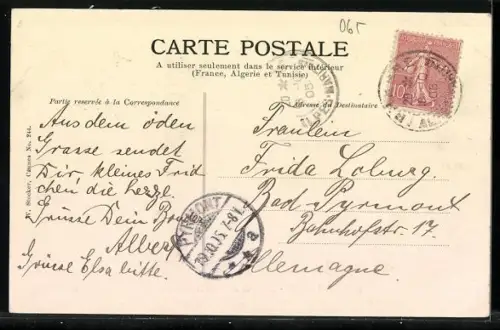 065
CARTE POSTALE
A utiliser seulement dans le service intérieur
(France, Algerie et Tunisie)
Partie reservée à la Correspondance
Adresse du Destinataire
Aus dem öden
Grasse sendet
Dir, kleines Frid
chen, die herzg.
Grüsse Dein Bruder
Albert
Grüsse Elsa bitte.
Fräulein
Frida Loburg.
Bad Pyrmont
Bahnhofstr. 17.
Allemagne.
PYRMONT
19.10.05. 7-8V.
* a
ALPES-MARITIMES
10
Cannes No. 244.